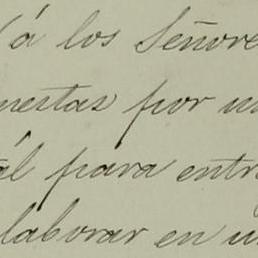 á los Señore
nestas por un
al para entr
laborar en un